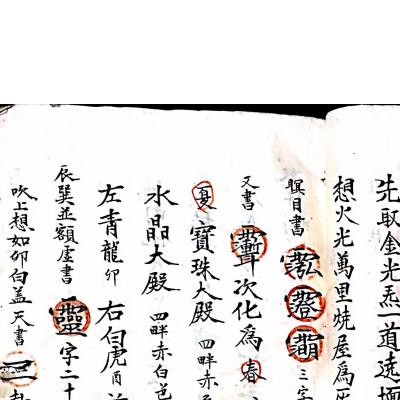 先取金光炁一道遶壇
想火光萬里燒屋為灰
瞑目書
三字
又書
次化為春
夏寶珠大殿 四畔赤
水晶大殿 四畔赤白色
左青龍卯 右白虎酉
辰巽並額虛書靈字二十
吹上想如卯白盖天書